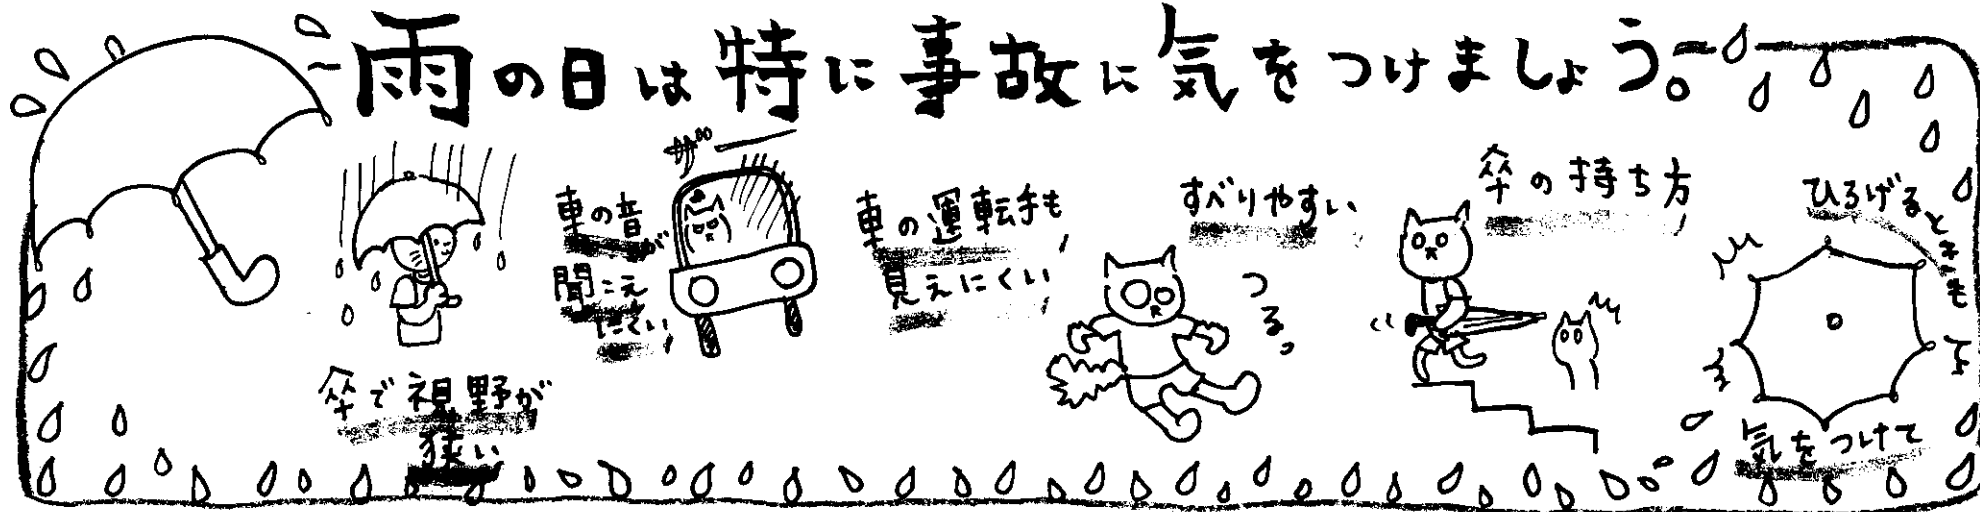 雨の日は特に事故に気をつけましょう。
傘で視野が
狭い
車の音が
聞こえ
にくい
ザー
車の運転手も
見えにくい
すべりやすい
つるっ
傘の持ち方
ひろげるときも
気をつけて